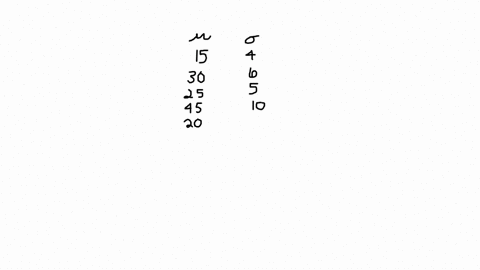 μ σ
15 4
30 6
25 5
45 10
20